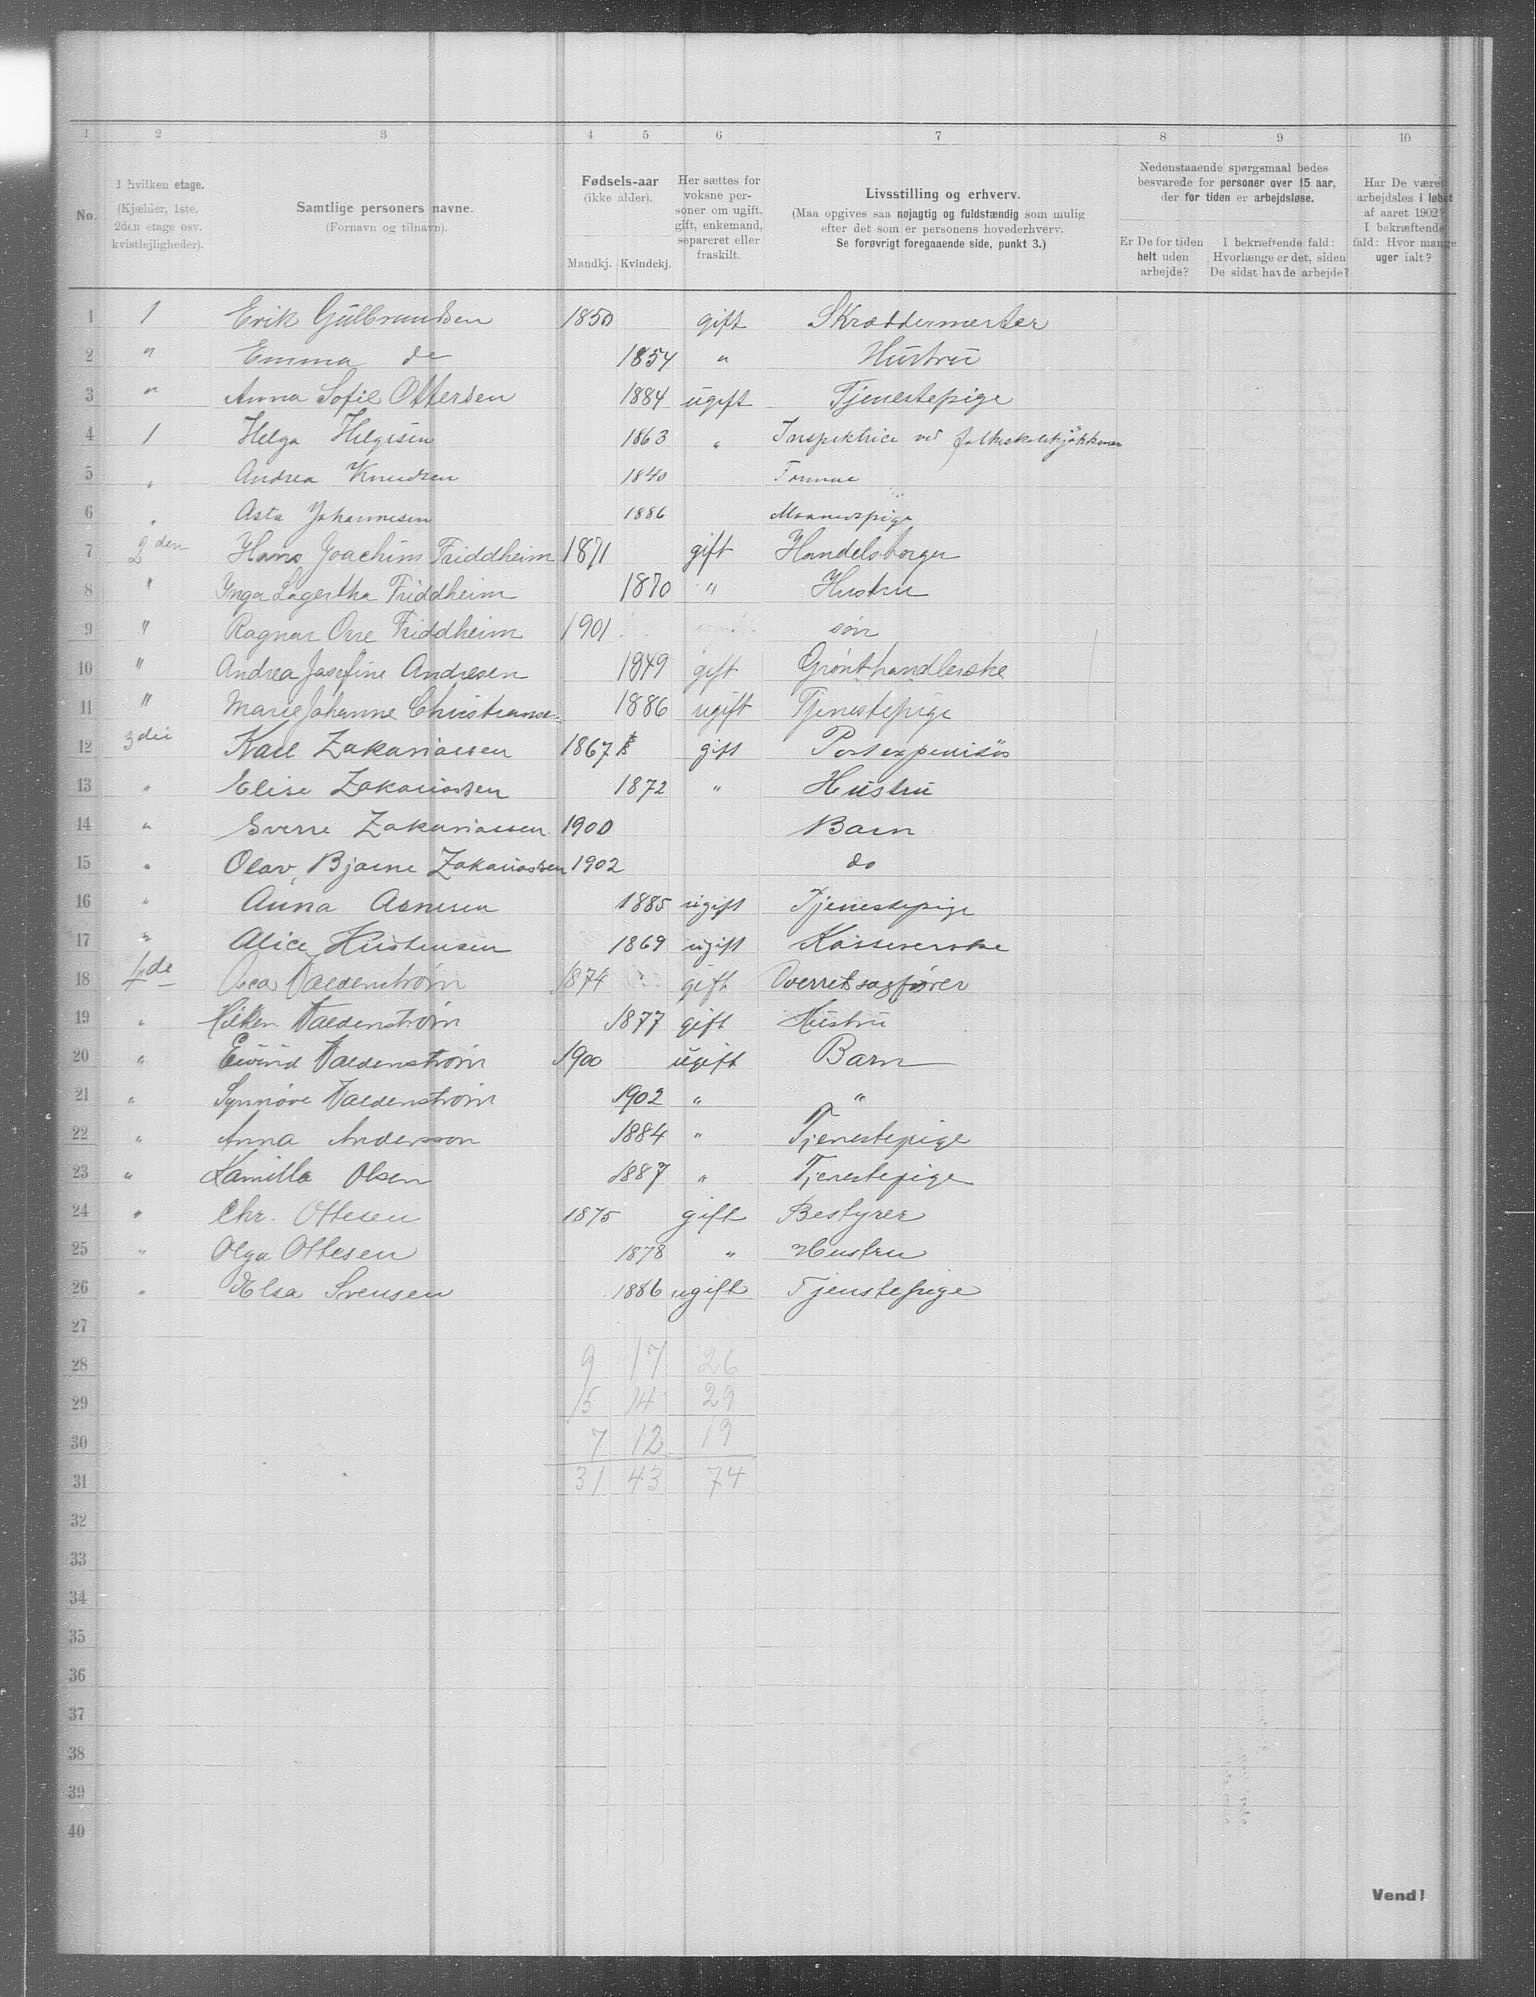 1 2 3 4 5 6 7 8 9 10
No.
I hvilken etage.
(Kjælder, 1ste, 2den etage osv. kvistlejligheder).
Samtlige personers navne.
(Fornavn og tilnavn).
Fødsels-aar
(ikke alder).
Mandkj. Kvindekj.
Her sættes for voksne personer om ugift, gift, enkemand, separeret eller fraskilt.
Livsstilling og erhverv.
(Maa opgives saa nøjagtig og fuldstændig som mulig efter det som er personens hovederhverv.
Se forøvrigt foregaaende side, punkt 3.)
Nedenstaaende spørgsmaal bedes besvarede for personer over 15 aar, der for tiden er arbejdsløse.
Er De for tiden helt uden arbejde?
I bekræftende fald: Hvorlænge er det, siden De sidst havde arbejde?
Har De været arbejdsløs i løbet af aaret 1902? I bekræftende fald: Hvor mange uger ialt?
1 1 Erik Gulbrandsen 1850 gift Skræddermester
2 " Emma do 1854 " Hustru
3 " Anna Sofie Ottersen 1884 ugift Tjenestepige
4 1 Helga Helgesen 1863 " Inspektrice ved folkeskolekjøkkenet
5 " Andrea Knudsen 1840
6 " Asta Johannesen 1886 Maanedspige
7 2den Hans Joachim Friddheim 1871 gift Handelsborger
8 " Inga Lagertha Friddheim 1870 " Hustru
9 " Ragnar Friddheim 1901 søn
10 " Andrea Josefine Andresen 1849 gift Grønthandlerske
11 " Marie Johanne 1886 ugift Tjenestepige
12 3die Karl Zakariassen 1867 gift Postexpeditør
13 " Elise Zakariassen 1872 " Hustru
14 " Sverre Zakariassen 1900 Barn
15 " Olav, Bjarne Zakariassen 1902 do
16 " Anna Arnesen 1885 ugift Tjenestepige
17 " Alice 1869 ugift Kassererske
18 4de Valdenstrøm 1874 gift Overretssagfører
19 " Valdenstrøm 1877 gift Hustru
20 " Eivind Valdenstrøm 1900 ugift Barn
21 " Synnøve Valdenstrøm 1902 " "
22 " Anna Andersson 1884 " Tjenestepige
23 " Kamilla Olsen 1887 " Tjenestepige
24 " Chr. Ottesen 1875 gift Bestyrer
25 " Olga Ottesen 1878 " Hustru
26 " Elsa Svensen 1886 ugift Tjenstepige
27
28 9 17 26
29 15 14 29
30 7 12 19
31 31 43 74
32
33
34
35
36
37
38
39
40
Vend!